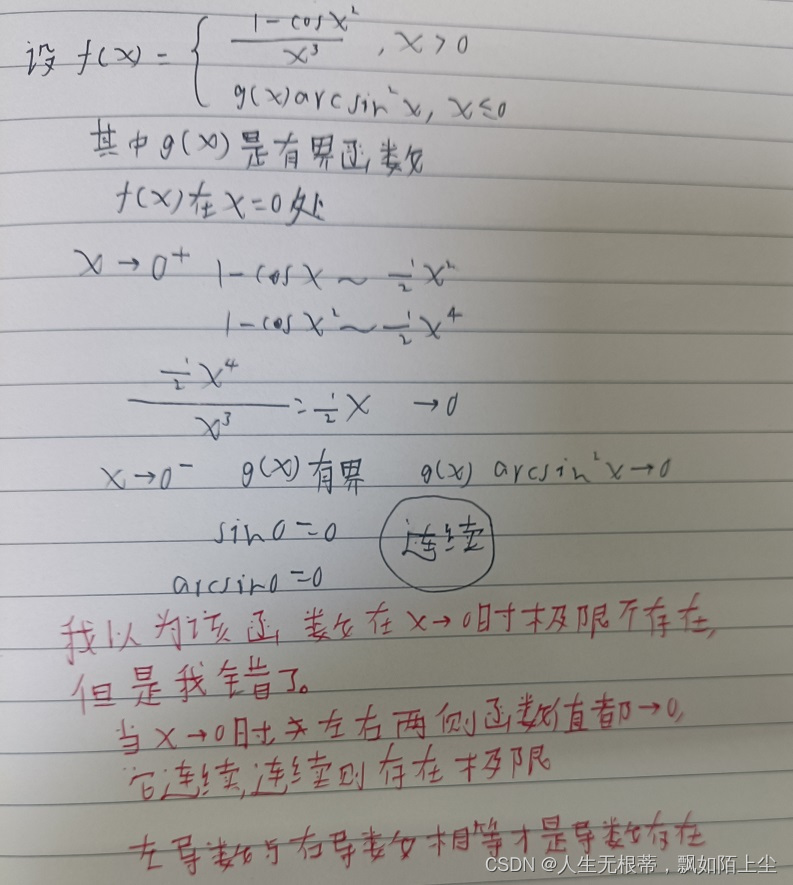 设 f(x) = { 1-cosx² / x³ , x>0
g(x)arcsin²x, x≤0
其中g(x)是有界函数
f(x)在x=0处
x→0⁺ 1-cosx ~ ½x²
1-cosx² ~ ½x⁴
½x⁴ / x³ = ½x →0
x→0⁻ g(x)有界 g(x) arcsin²x→0
sin0=0 连续
arcsin0=0
我以为该函数在x→0时极限不存在,
但是我错了。
当x→0时 左右两侧函数值都→0,
它连续,连续则存在极限
左导数与右导数相等才是导数存在
CSDN @人生无根蒂，飘如陌上尘